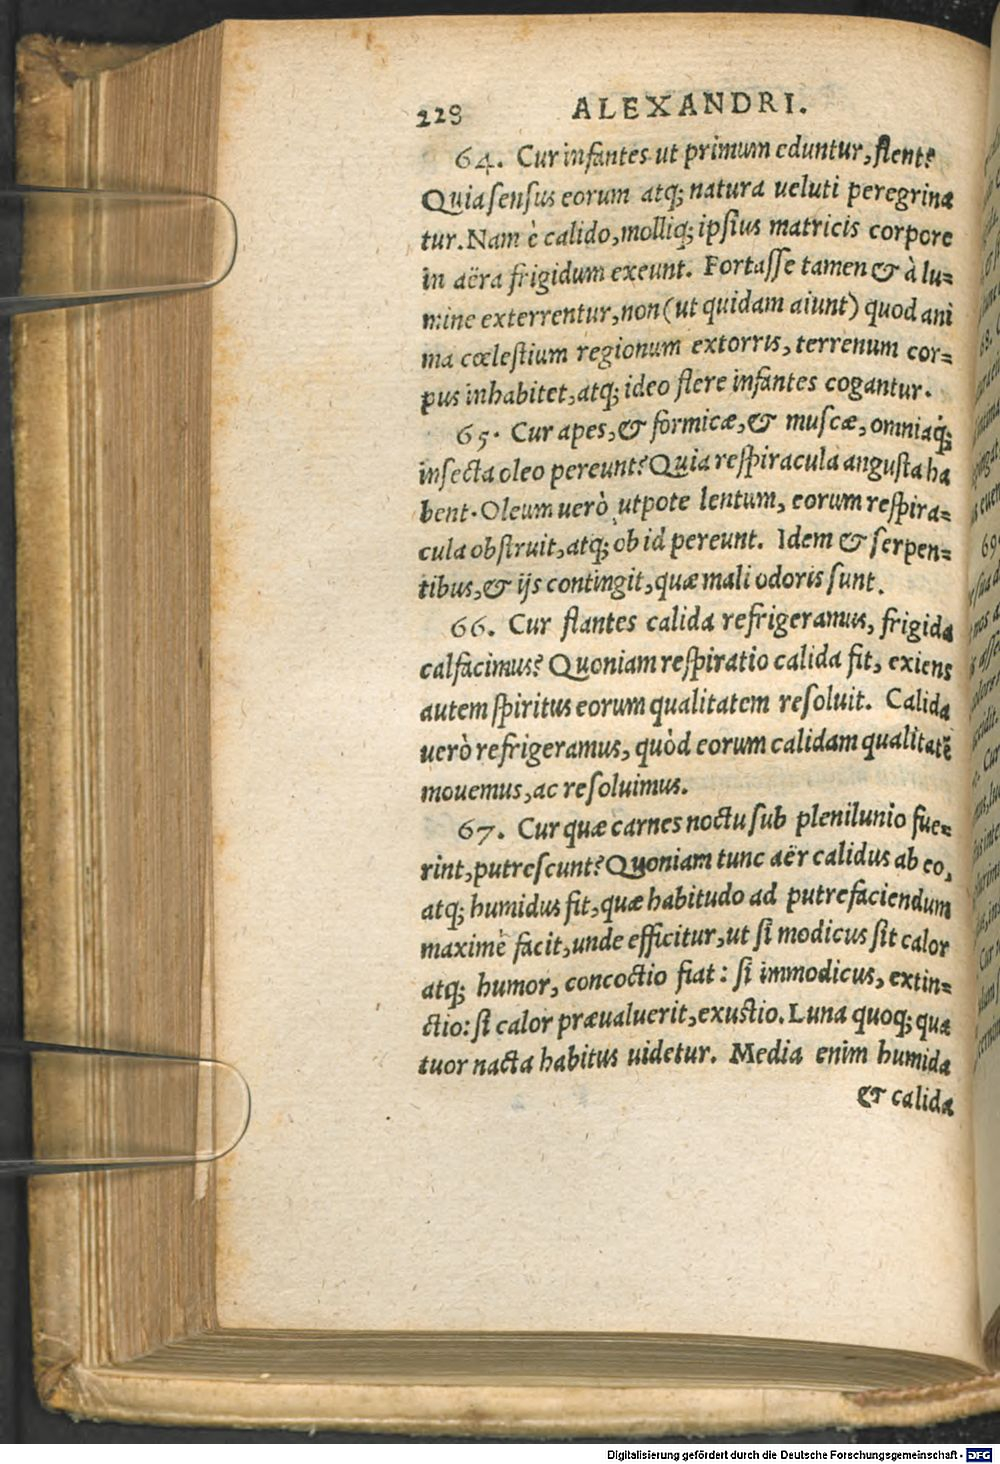 228 ALEXANDRI.
64. Cur infantes ut primum eduntur, flent?
Quia sensus eorum atq; natura ueluti peregrina
tur. Nam è calido, molliq; ipsius matricis corpore
in aëra frigidum exeunt. Fortasse tamen & à lu=
mine exterrentur, non (ut quidam aiunt) quod ani
ma cœlestium regionum extorris, terrenum cor=
pus inhabitet, atq; ideo flere infantes cogantur.
65. Cur apes, & formicæ, & muscæ, omniaq́;
insecta oleo pereunt? Quia respiracula angusta ha
bent. Oleum uerò, utpote lentum, eorum respira=
cula obstruit, atq; ob id pereunt. Idem & serpen=
tibus, & ijs contingit, quæ mali odoris sunt.
66. Cur flantes calida refrigeramus, frigida
calfacimus? Quoniam respiratio calida fit, exiens
autem spiritus eorum qualitatem resoluit. Calida
uerò refrigeramus, quòd eorum calidam qualitatẽ
mouemus, ac resoluimus.
67. Cur quæ carnes noctu sub plenilunio fue=
rint, putrescunt? Quoniam tunc aër calidus ab eo,
atq; humidus fit, quæ habitudo ad putrefaciendum
maximè facit, unde efficitur, ut si modicus sit calor
atq; humor, concoctio fiat: si immodicus, extin=
ctio: si calor præualuerit, exustio. Luna quoq; qua
tuor nacta habitus uidetur. Media enim humida
& calida
Digitalisierung gefördert durch die Deutsche Forschungsgemeinschaft - DFG